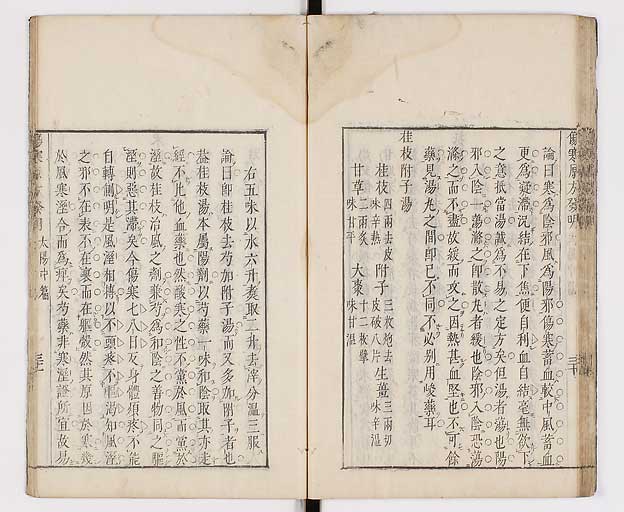 傷寒原方發明
論曰寒爲陰邪風爲陽邪傷寒蓄血較中風蓄血
更爲凝滯況結在下焦便自利血自結毫無欲下
之意抵當湯誠爲不易之定方矣但湯者湯也陽
邪入陰一蕩滌之即散丸者緩也陰邪入陰恐蕩
滌之而不盡故緩而攻之因熱甚血堅也不可餘
藥見湯丸之間即已不同不必別用峻藥耳
桂枝附子湯
桂枝四兩去皮味辛熱 附子三枚炮去皮破八片 生薑三兩切味辛溫
甘草二兩炙味甘平 大棗十二枚擘味甘溫
三十
右五味以水六升煮取二升去滓分溫三服
論曰即桂枝去芍加附子湯而又多加附子者也
蓋桂枝湯本屬陽劑以芍藥一味和陰取其亦走
經不比他血藥也然酸寒之性不黨於風而黨於
溼故桂枝治風之劑兼芍爲和陰之善物同之驅
溼則惡其滯矣今傷寒七八日又身體煩疼不能
自轉側明是風溼相搏以不頭疼不嘔渴知風溼
之邪不在表不在裏而在軀殼然其原因於寒幾
於風寒溼合而爲痺矣芍藥非寒溼證所宜故易
太陽中篇
三十一